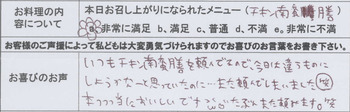 お料理の内容について
本日お召し上がりになられたメニュー(千本南禅膳)
a、非常に満足 b、満足 c、普通 d、不満 e、非常に不満
お客様のご声援によって私どもは大変勇気づけられますのでお喜びのお言葉をお書き下さい。
お喜びのお声
いつも千本南禅膳を頼んでるので、今日は違うものに
しようかなーと思っていたのに…また頼んでしまいました(笑)
本っっ当においしいです いつかまた頼んでます。(笑)